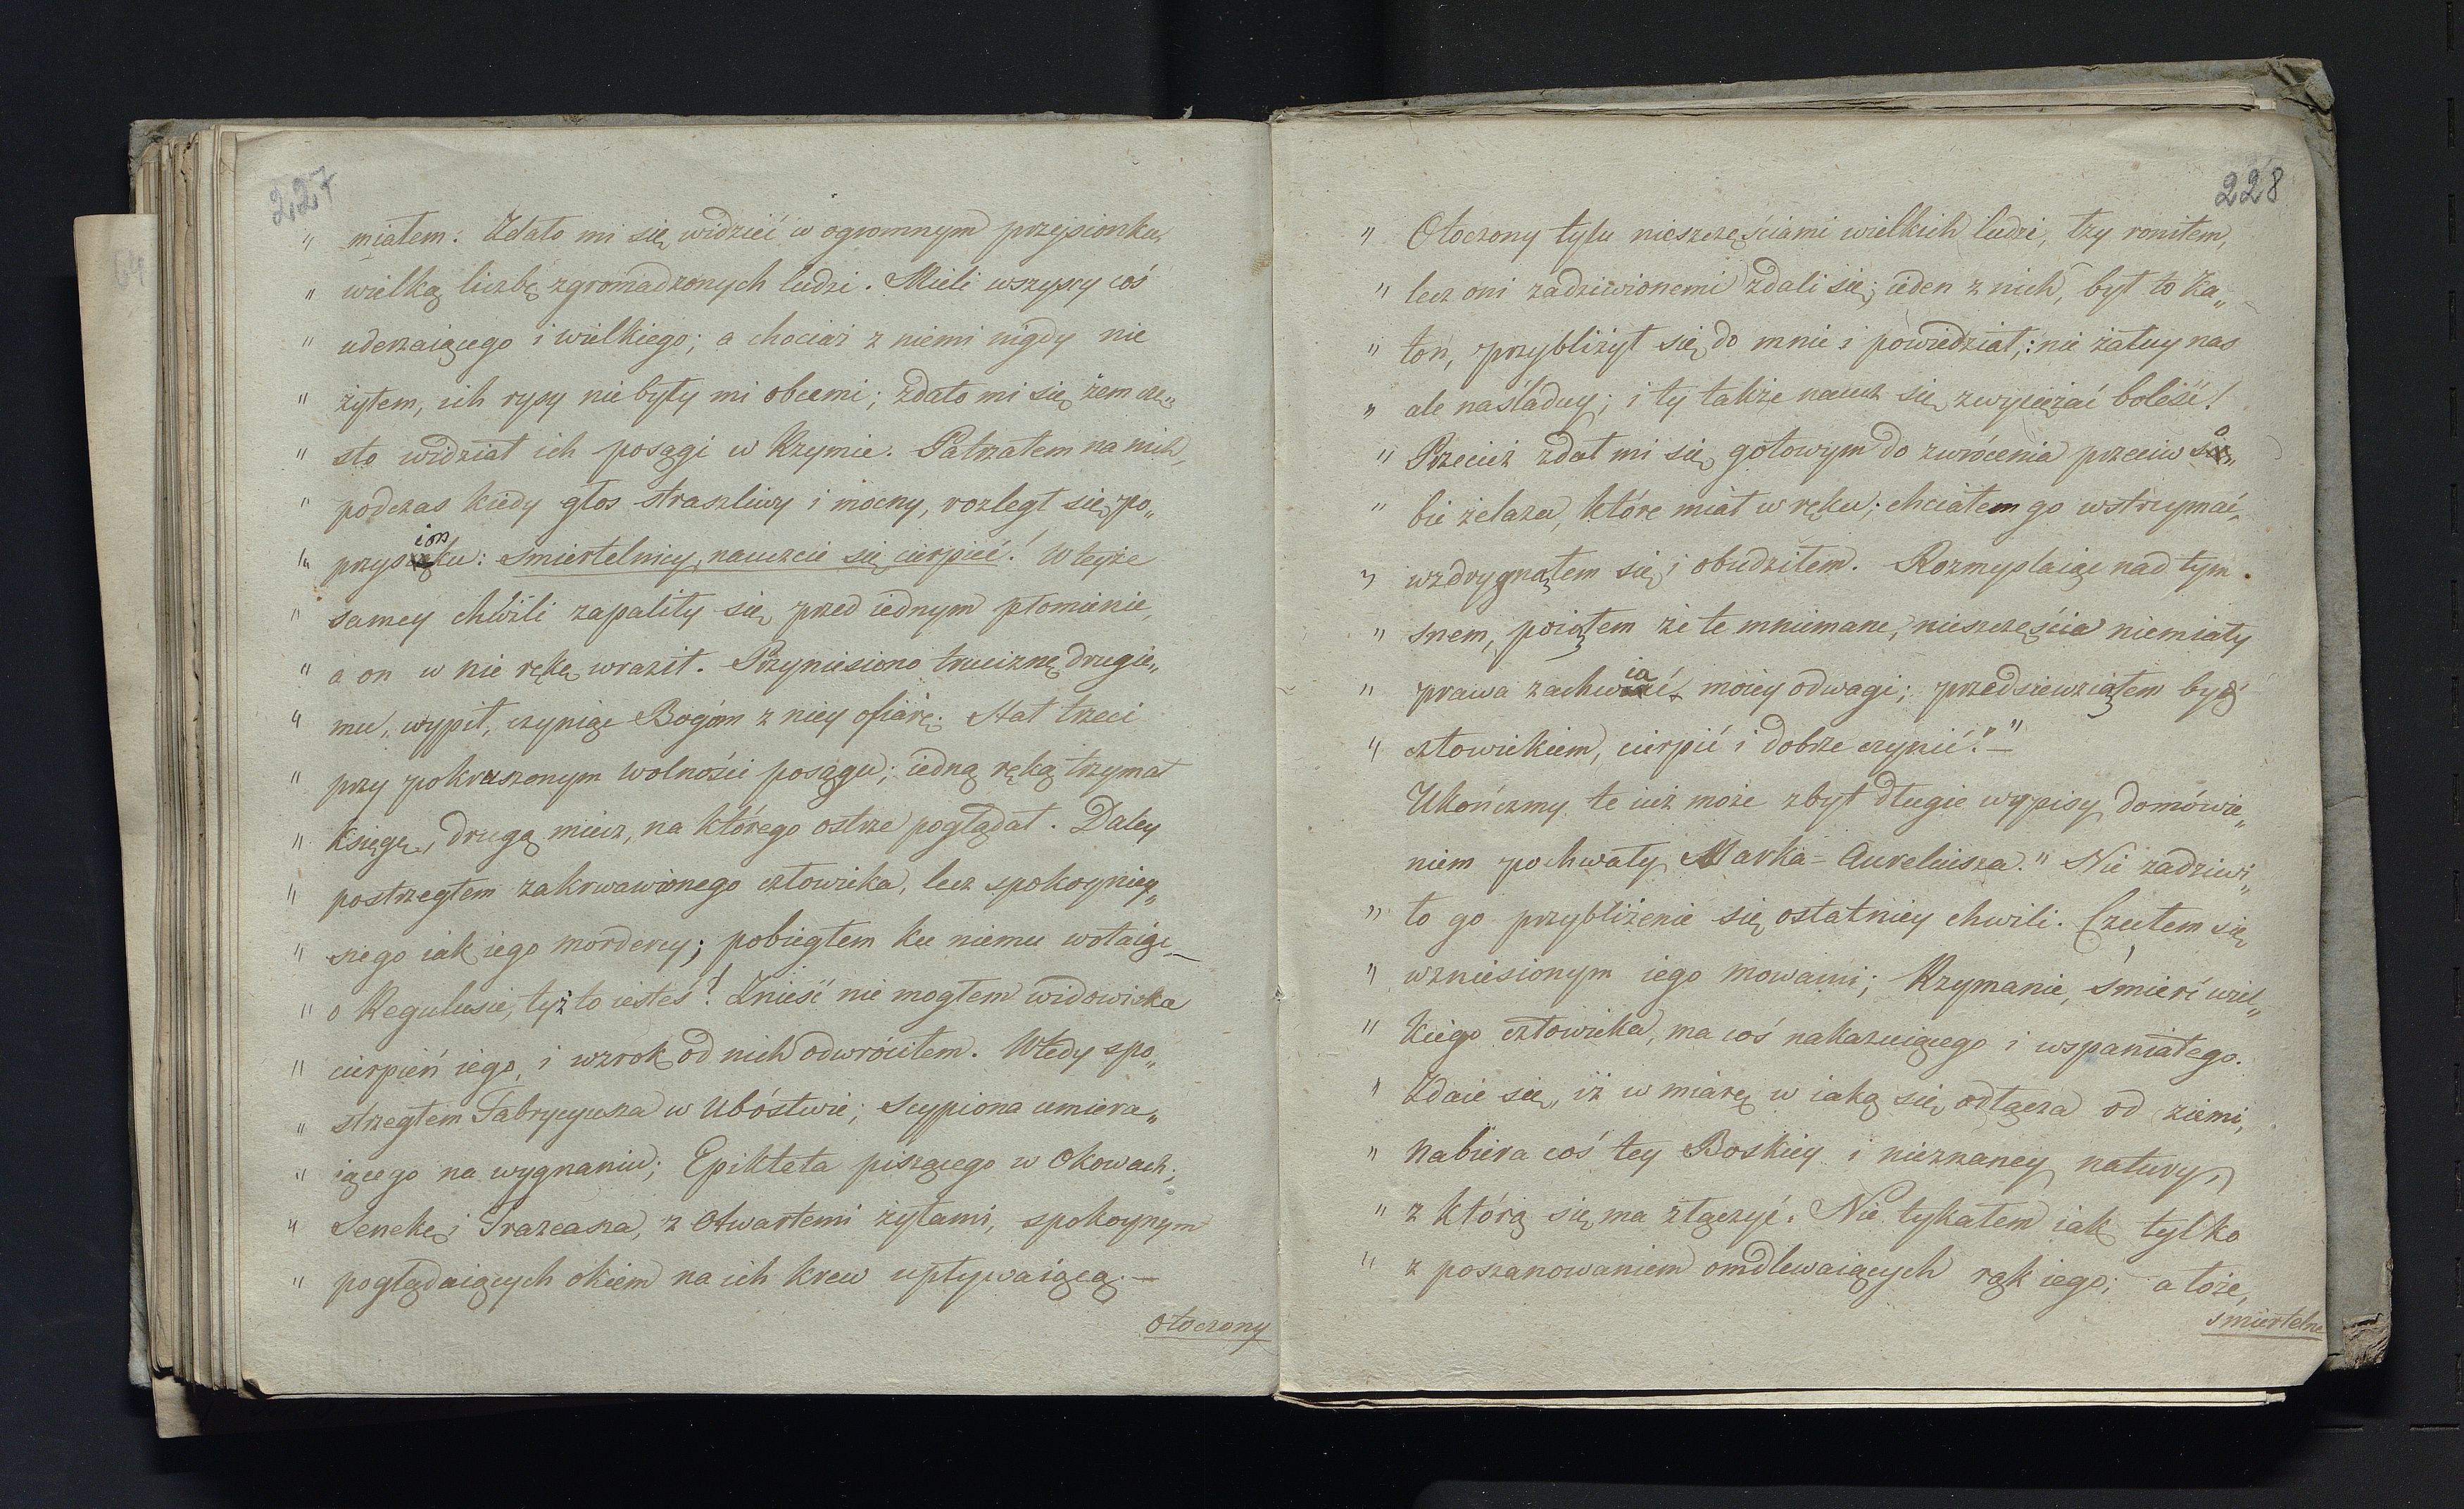 227
" miałem. Zdało mi się widzieć w ogromnym przysionku,
" wielką liczbę zgromadzonych ludzi. Mieli wszyscy coś
" uderzaiącego i wielkiego; a chociaż z niemi nigdy nie
" żyłem, ich rysy nie były mi obcemi; zdało mi się żem czę„
" sto widział ich posągi w Rzymie. Patrzałem na nich,
" podczas kiedy głos straszliwy i mocny, rozległ się po„
" przysionku: śmiertelnicy, nauczcie się cierpieć! W teyże
" samey chwili zapaliły się przed iednym płomienie,
" a on w nie rękę wraził. Przyniesiono truciznę drugie„
" mu, wypił, czyniąc Bogóm z niey ofiarę. Stał trzeci
" przy pokruszonym wolności posągu; iedną ręką trzymał
" księgę, drugą miecz, na którego ostrze poglądał. Daley
" postrzegłem zakrwawionego człowieka, lecz spokoyniey„
" szego iak iego mordercy; pobiegłem ku niemu wołaiąc_
" o Regulusie, tyżto iesteś! Znieść nie mogłem widowiska
" cierpień iego, i wzrok od nich odwróciłem. Wtedy spo„
" strzegłem Fabrycyusza w Ubóstwie; Scypiona umiera„
" iącego na wygnaniu; Epikteta piszącego w Okowach;
" Senekę i Trazeasza, z Otwartemi żyłami, spokoynym
" poglądaiących okiem na ich krew upływaiącą.—
otoczony
228
" Otoczony tylu nieszczęściami wielkich ludzi, łzy roniłem,
" lecz oni zadziwionemi zdali się; ieden z nich, był to Ka„
" ton, przybliżył się do mnie i powiedział,: nie żałuy nas
" ale naśladuy; i ty także naucz się zwyciężać boleść!
" Przecież zdał mi się gotowym do zwrócenia przeciw so„
" bie żelaza, które miał w ręku; chciałem go wstrzymać,
" wzdrygnąłem się i obudziłem. Rozmyślaiąc nad tym
" snem, poiąłem że te mniemane, nieszczęścia niemiały
" prawa zachwiać moiey odwagi; przedsięwziąłem być
" człowiekiem, cierpić i dobrze czynić!"—"
Ukończmy te iuż może zbyt długie wypisy domówie„
niem pochwały Marka-Aureliusza." Nie zadziwi„
" ło go przybliżenie się ostatniey chwili. Czułem się
" wzniesionym iego mowami; Rzymanie, śmierć wiel„
" kiego człowieka, ma coś nakazuiącego i wspaniałego.
" Zdaie się, iż w miarę w iaką się odłącza od ziemi,
" nabiera coś tey Boskiey i nieznaney natury,
" z którą się ma złączyć. Nie tykałem iak tylko
" z poszanowaniem omdlewaiących rąk iego; a łoże,
śmiertelne